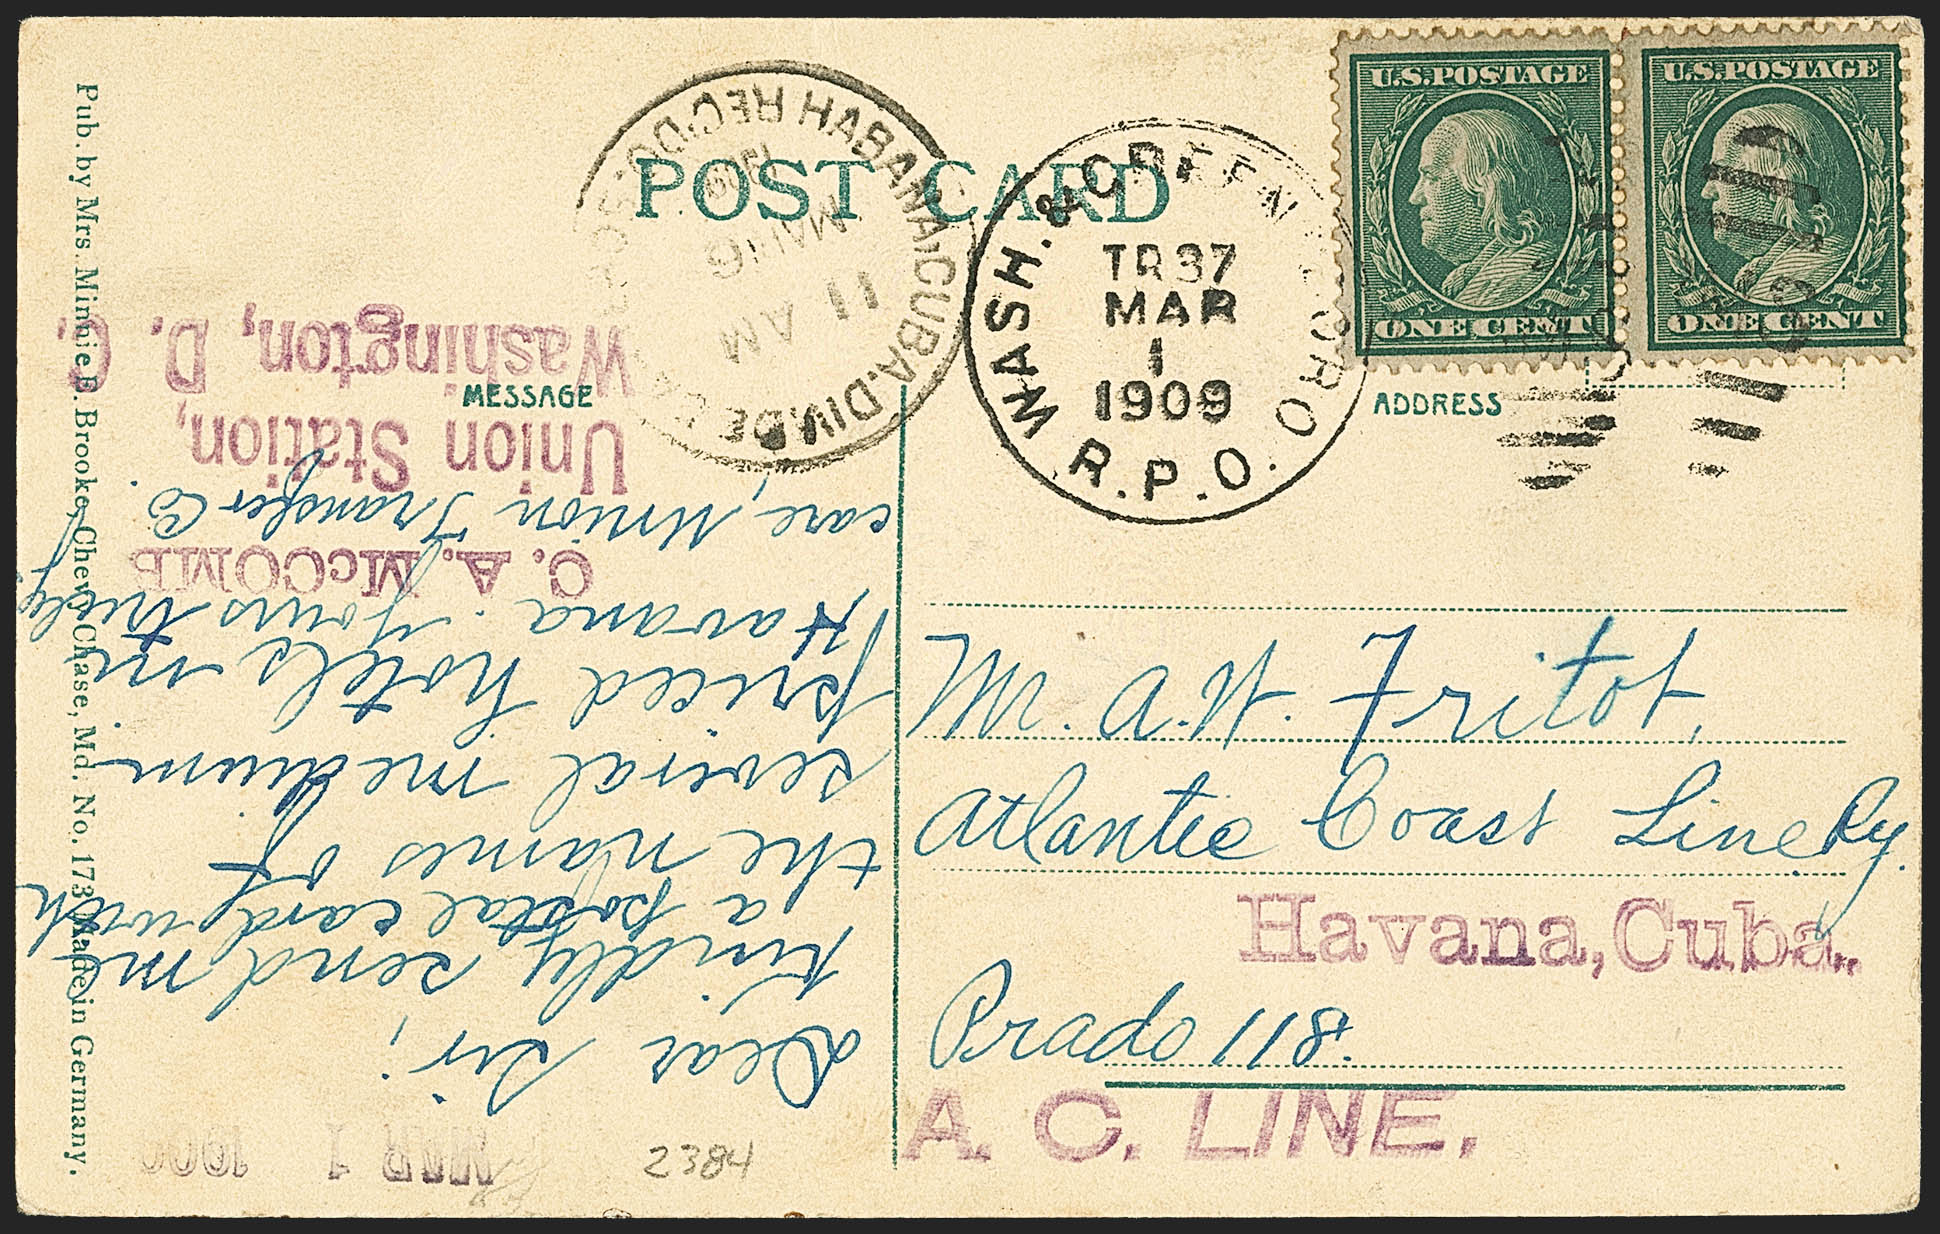 POST CARD
MESSAGE
ADDRESS
U.S. POSTAGE
ONE CENT
U.S. POSTAGE
ONE CENT
WASH. & GREENSBORO
R.P.O.
TR 37
MAR
1
1909
HABANA, CUBA. DIV. DE
REC'DO.
1909
MAR 6
11 AM
Mr. A. W. Fritot,
Atlantic Coast Line Ry.
Havana, Cuba.
Prado 118.
A. C. LINE.
MAR 1 1909
Dear Sir,
Kindly send me
a postal card with
the names of
several medium
priced hotels in
Havana. Yours truly
C. A. McCOMB
care, Union Transfer Co.
Union Station,
Washington, D. C.
2384
Pub. by Mrs. Minnie E. Brooke, Chevy Chase, Md. No. 173 Made in Germany.